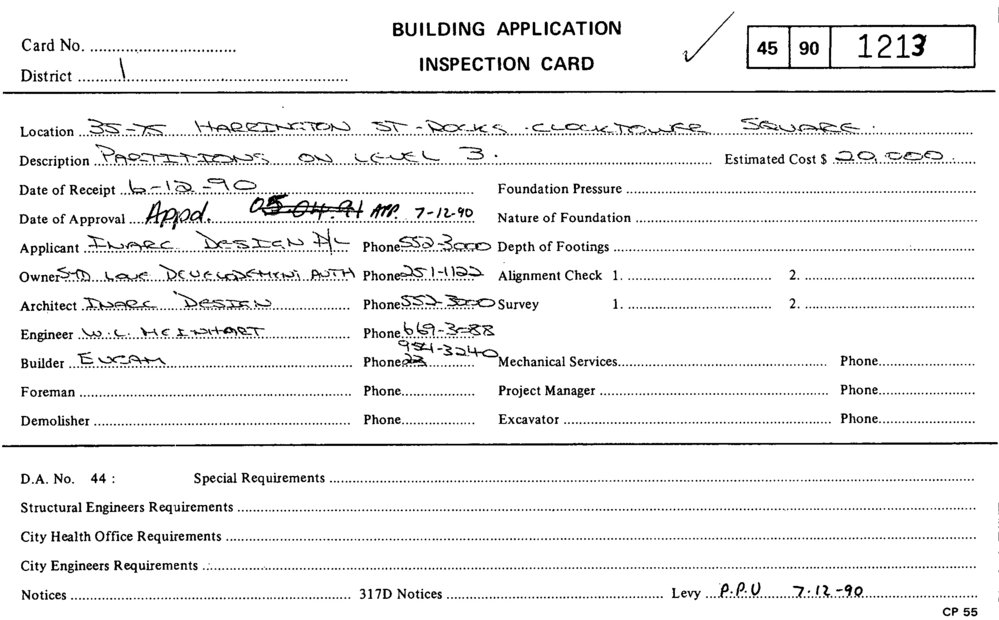 BUILDING APPLICATION
INSPECTION CARD
Card No. 45 90 1213
District 1
Location 35-75 HARRINGTON ST - ROCKS - CLOCKTOWER SQUARE.
Description PARTITIONS ON LEVEL 3. Estimated Cost $ 20,000
Date of Receipt 6-12-90 Foundation Pressure
Date of Approval Appd. 05.04.91 APP. 7-12-90 Nature of Foundation
Applicant INARC DESIGN P/L Phone 552-3000 Depth of Footings
Owner DEVELOPEMENT AUTH Phone 251-1122 Alignment Check 1. 2.
Architect INARC DESIGN Phone 552-3000 Survey 1. 2.
Engineer W.L. MEINHART Phone 669-3088
Builder EUCAM Phone 954-3240 Mechanical Services Phone
Foreman Phone Project Manager Phone
Demolisher Phone Excavator Phone
D.A. No. 44 : Special Requirements
Structural Engineers Requirements
City Health Office Requirements
City Engineers Requirements
Notices 317D Notices Levy P.P.U 7-12-90
CP 55